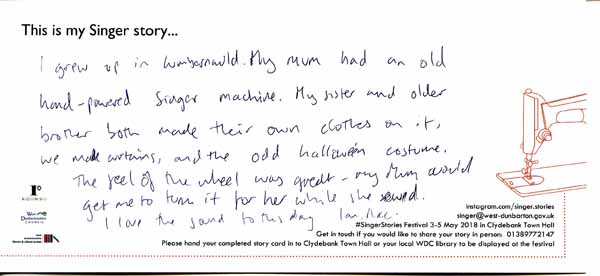 This is my Singer story...
I grew up in Cumbernauld. My mum had an old
hand-powered Singer machine. My sister and older
brother both made their own clothes on it,
we made curtains, and the odd halloween costume.
The feel of the wheel was great - my Mum would
get me to turn it for her while she sewed.
I love the sound to this day
West
Dunbartonshire
COUNCIL
instagram.com/singer.stories
singer@west-dunbarton.gov.uk
#SingerStories Festival 3-5 May 2018 in Clydebank Town Hall
Get in touch if you would like to share your story in person: 01389772147
Please hand your completed story card in to Clydebank Town Hall or your local WDC library to be displayed at the festival